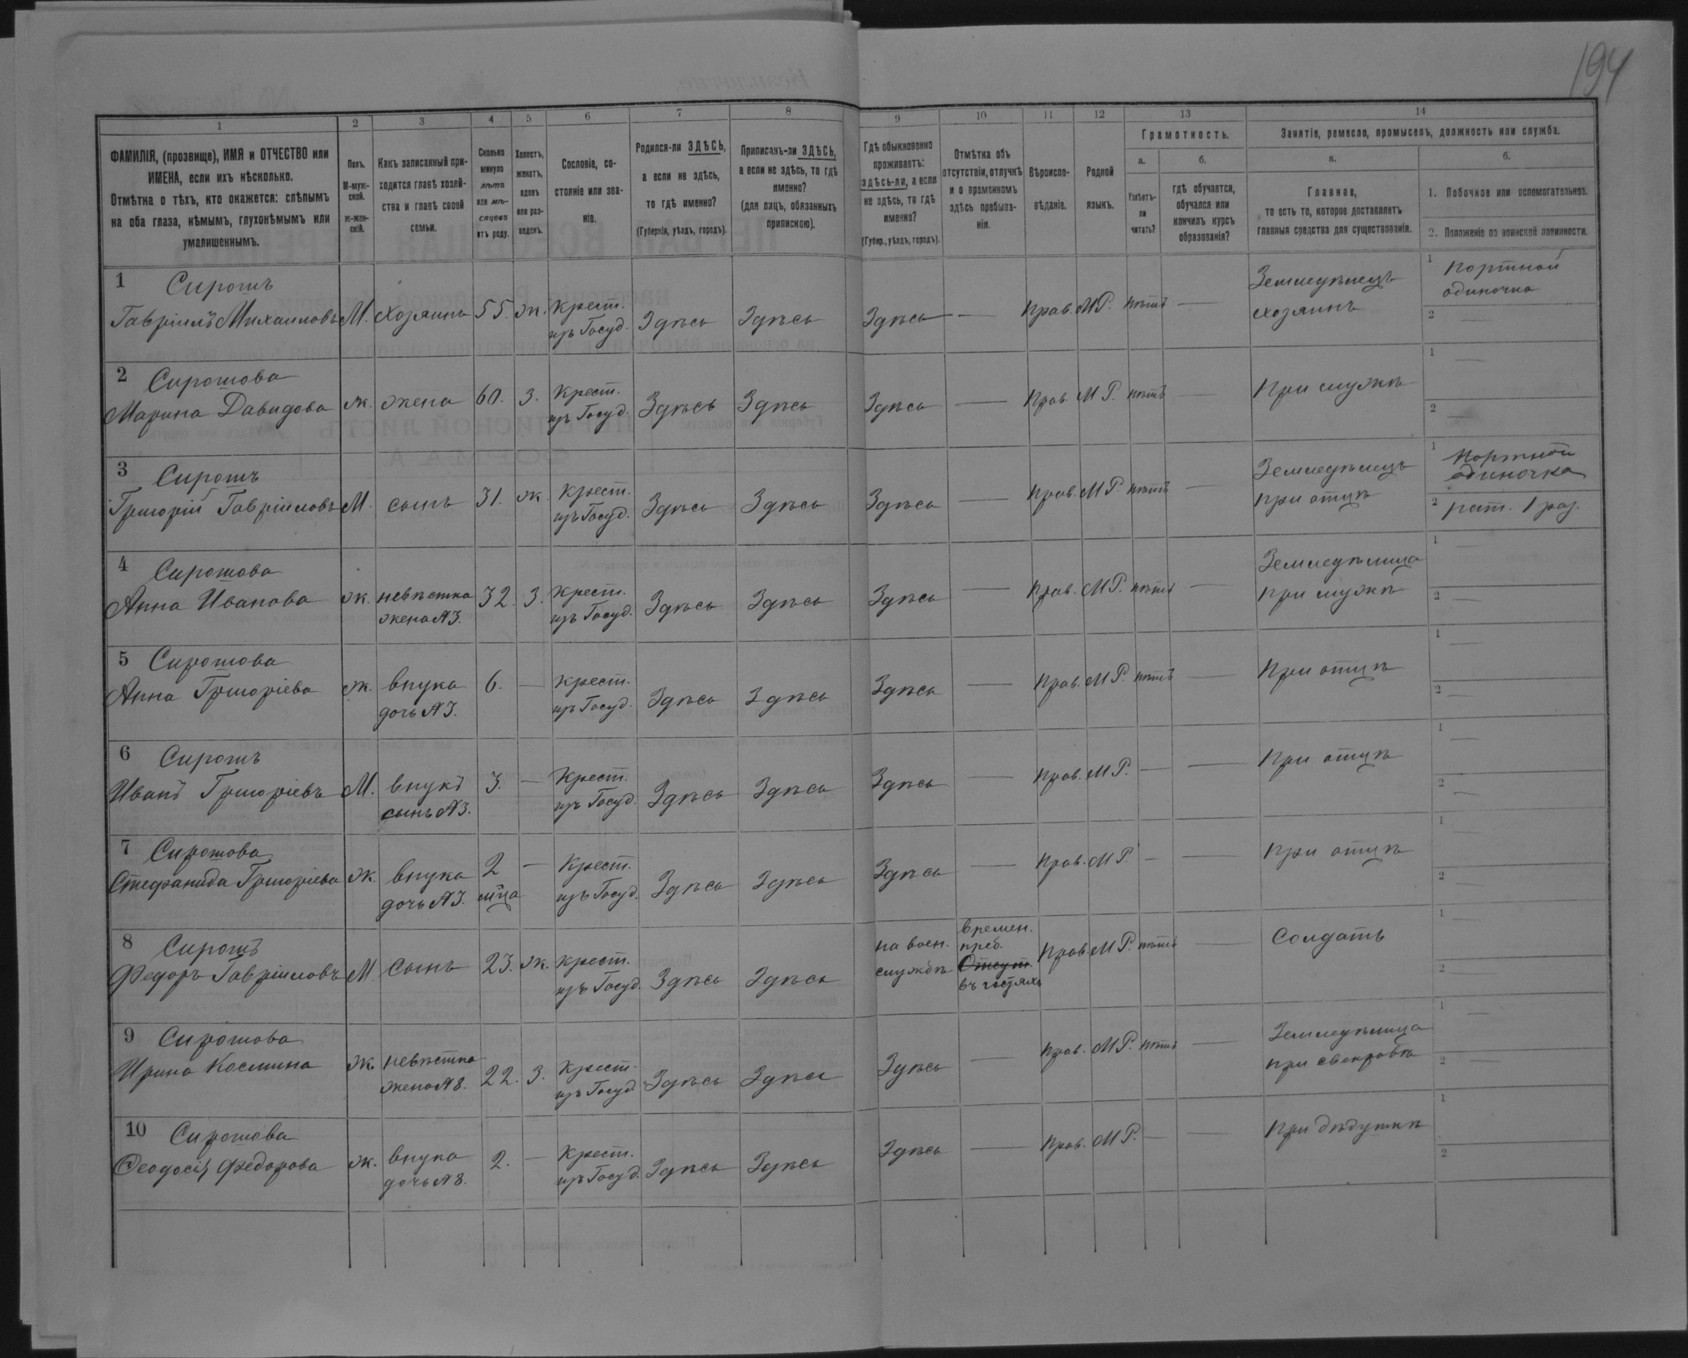 194
1 2 3 4 5 6 7 8 9 10 11 12 13 14
ФАМИЛІЯ, (прозвище), ИМЯ и ОТЧЕСТВО или
ИМЕНА, если ихъ нѣсколько.
Отмѣтка о тѣхъ, кто окажется: слѣпымъ
на оба глаза, нѣмымъ, глухонѣмымъ или
умалишеннымъ.
Полъ.
М-муж-
ской.
ж-жен-
скій.
Какъ записанный при-
ходится главѣ хозяй-
ства и главѣ своей
семьи.
Сколько
минуло
лѣтъ
или мѣ-
сяцевъ
отъ роду.
Холостъ,
женатъ,
вдовъ
или раз-
веденъ.
Сословіе, со-
стояніе или зва-
ніе.
Родился-ли ЗДѢСЬ,
а если не здѣсь,
то гдѣ именно?
(Губернія, уѣздъ, городъ).
Приписанъ-ли ЗДѢСЬ,
а если не здѣсь, то гдѣ
именно?
(для лицъ, обязанныхъ
припискою).
Гдѣ обыкновенно
проживаетъ:
здѣсь-ли, а если
не здѣсь, то гдѣ
именно?
(Губер., уѣздъ, городъ).
Отмѣтка объ
отсутствіи, отлучкѣ
и о временномъ
здѣсь пребыва-
ніи.
Вѣроиспо-
вѣданіе.
Родной
языкъ.
Грамотность.
а.
Умѣетъ-
ли
читать?
б.
гдѣ обучается,
обучался или
кончилъ курсъ
образованія?
Занятіе, ремесло, промыселъ, должность или служба.
а.
Главное,
то есть то, которое доставляетъ
главныя средства для существованія.
б.
1. Побочное или вспомогательное.
2. Положеніе по воинской повинности.
1 Сиротъ
Гавріилъ Михаиловъ М. хозяинъ 55. ж. Крест. изъ Госуд. Здѣсь Здѣсь Здѣсь — Прав. МР. нѣтъ — Земледѣлецъ хозяинъ 1 портной одиночка
2 —
2 Сиротова
Марина Давидова ж. жена 60. з. Крест. изъ Госуд. Здѣсь Здѣсь Здѣсь — Прав. МР. нѣтъ — При мужѣ 1 —
2 —
3 Сиротъ
Григорій Гавріиловъ М. сынъ 31. ж. Крест. изъ Госуд. Здѣсь Здѣсь Здѣсь — Прав. МР. нѣтъ — Земледѣлецъ при отцѣ 1 портной одиночка
2 рат. 1 раз.
4 Сиротова
Анна Иванова ж. невѣстка жена №3. 32. з. Крест. изъ Госуд. Здѣсь Здѣсь Здѣсь — Прав. МР. нѣтъ — Земледѣлица при мужѣ 1 —
2 —
5 Сиротова
Анна Григоріева ж. внука дочь №3. 6. — Крест. изъ Госуд. Здѣсь Здѣсь Здѣсь — Прав. МР. нѣтъ — При отцѣ 1 —
2 —
6 Сиротъ
Иванъ Григоріевъ М. внукъ сынъ №3. 3. — Крест. изъ Госуд. Здѣсь Здѣсь Здѣсь — Прав. МР. — — При отцѣ 1 —
2 —
7 Сиротова
Стефанида Григоріева ж. внука дочь №3. 2 мѣца — Крест. изъ Госуд. Здѣсь Здѣсь Здѣсь — Прав. МР. — — При отцѣ 1 —
2 —
8 Сиротъ
Федоръ Гавріиловъ М сынъ 23. ж. Крест. изъ Госуд. Здѣсь Здѣсь на воен. службѣ времен. преб. Отсут. въ гостяхъ Прав МР. нѣтъ — Солдатъ 1 —
2 —
9 Сиротова
Ирина Космина ж. невѣстка жена №8. 22. з. Крест. изъ Госуд. Здѣсь Здѣсь Здѣсь — Прав. МР. нѣтъ — Земледѣлица при свекровѣ 1 —
2 —
10 Сиротова
Ѳеодосія Федорова ж. внука дочь №8. 2. — Крест. изъ Госуд. Здѣсь Здѣсь Здѣсь — Прав. МР. — — При дѣдушкѣ 1
2